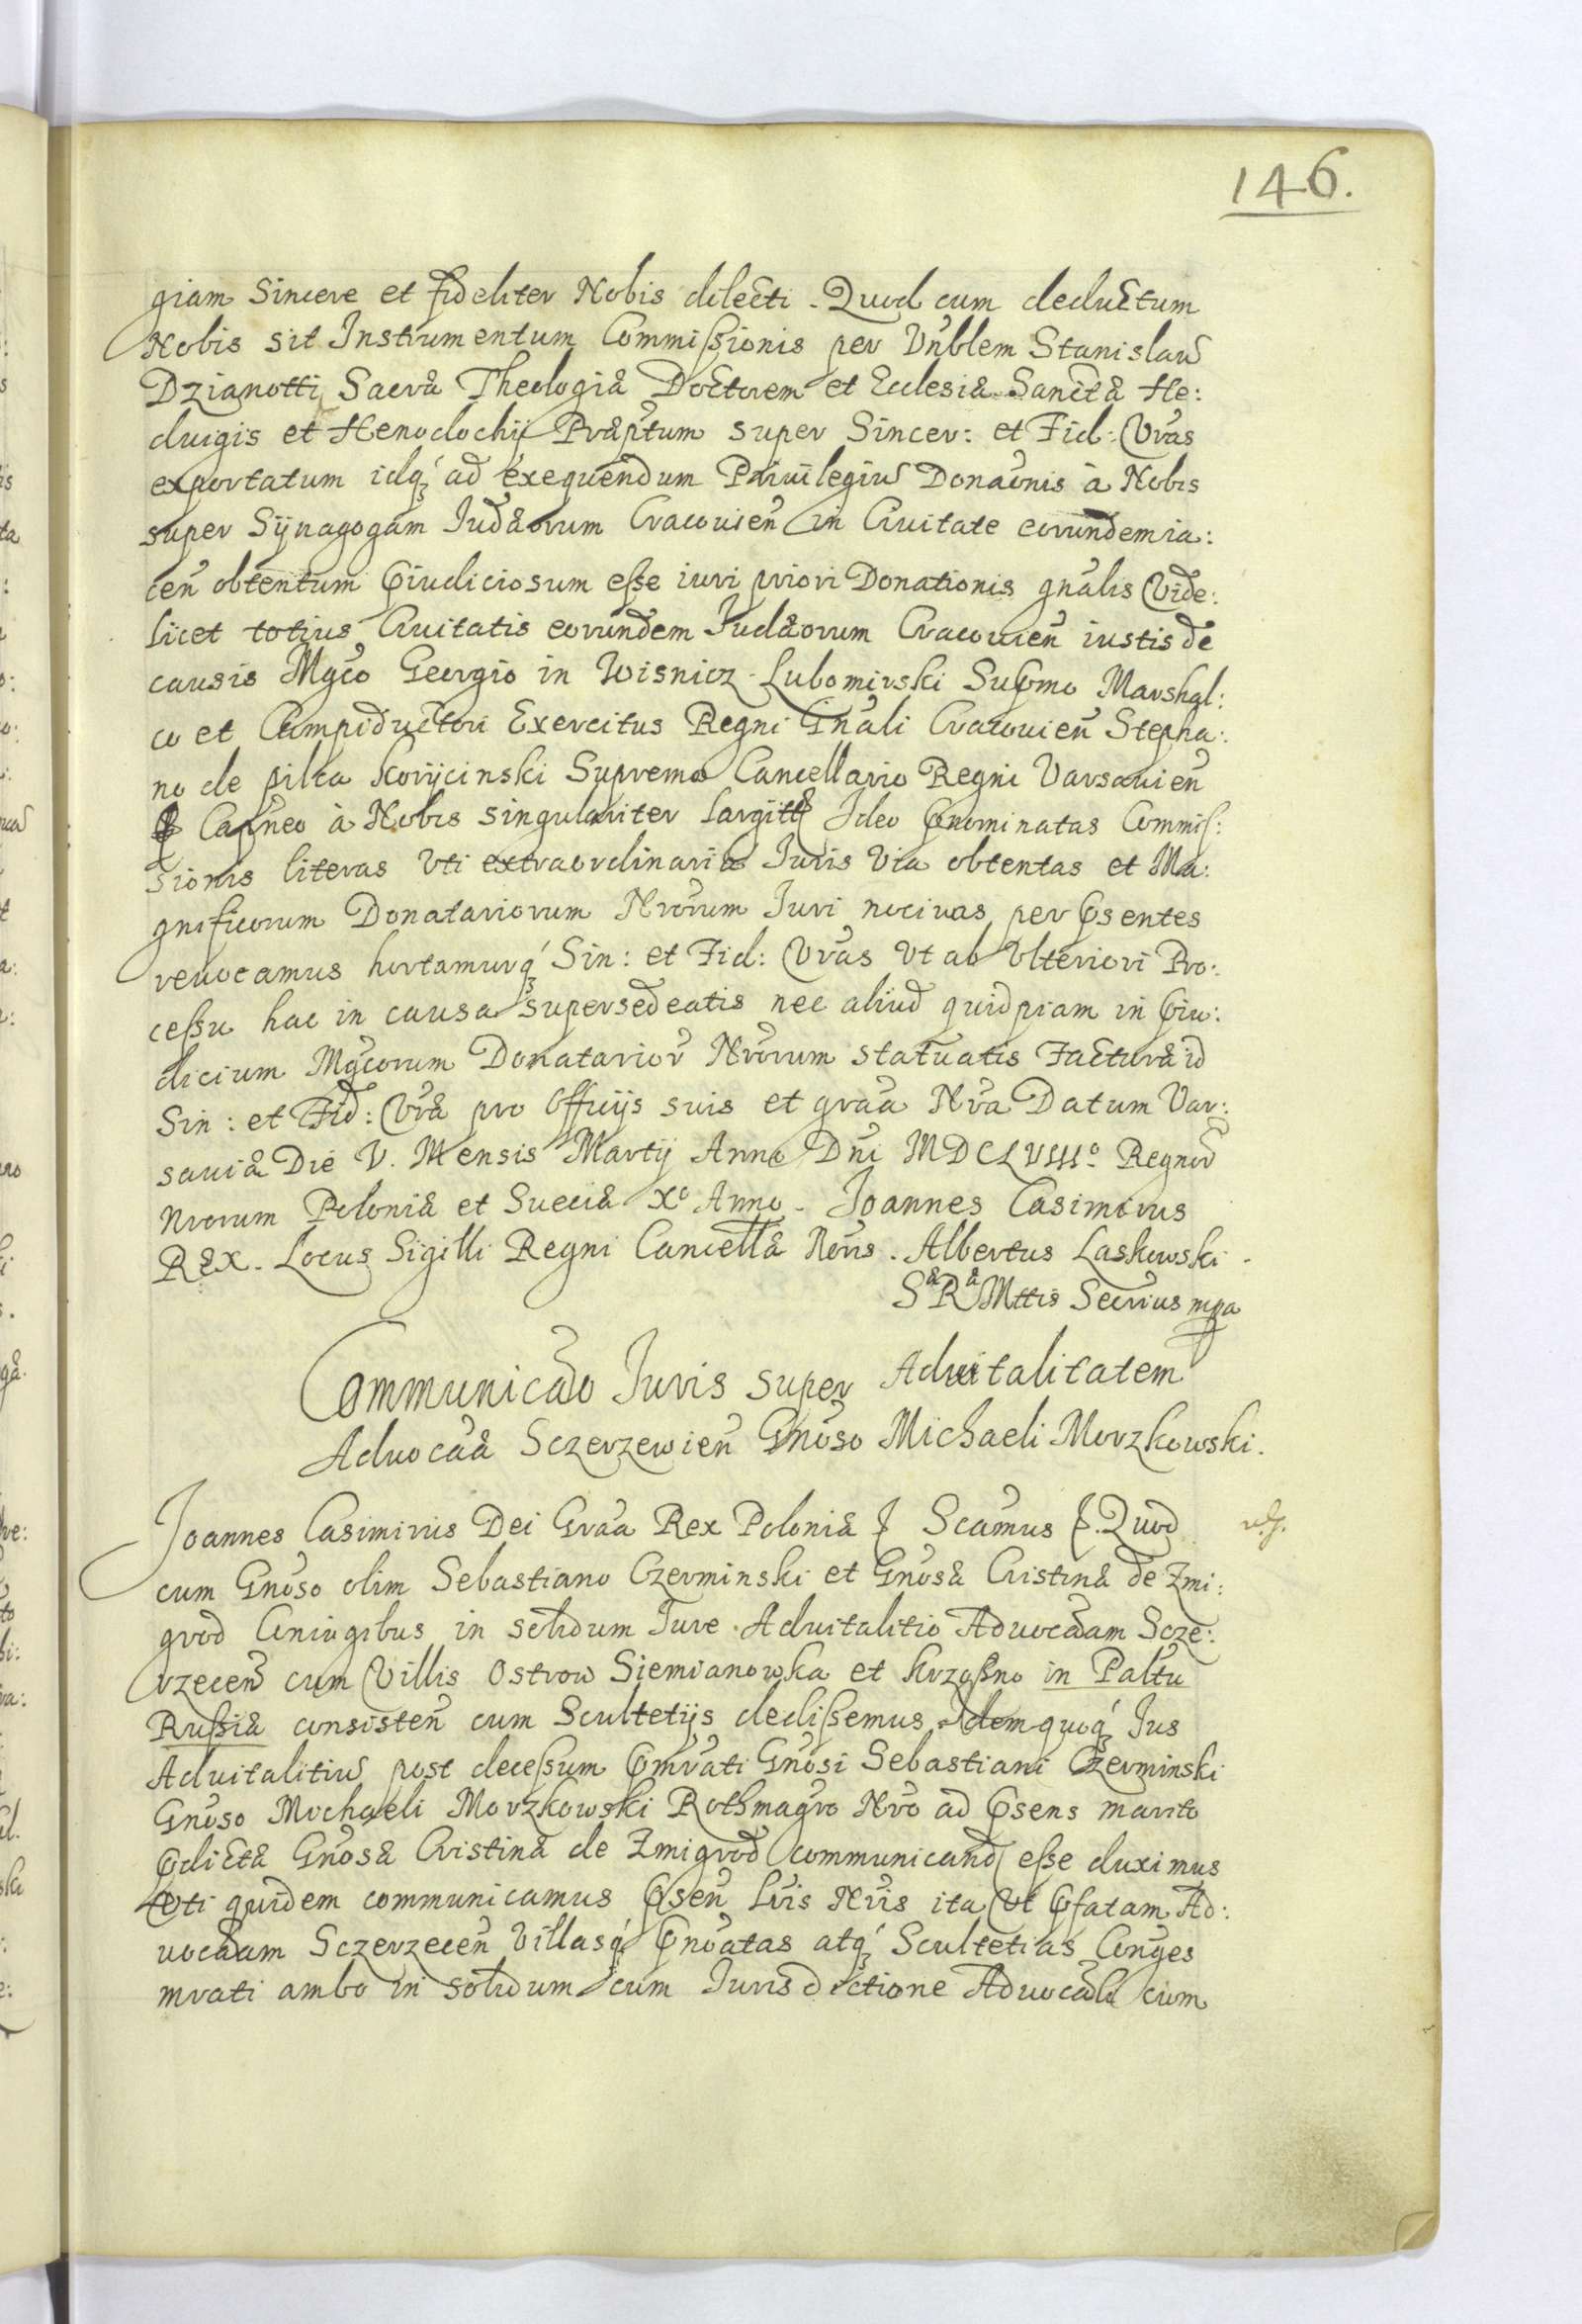 146.
giam Sincere et fideliter Nobis dilecti. Quod cum deductum
Nobis sit Instrumentum Commißionis per Vnblem Stanislaũ
Dzianotti Sacræ Theologiæ Doctorem et Ecclesiæ Sanctæ He:
duigis et Henodochij Præptum super Sincer: et Fid: Vras
exportatum idq́ ad exequendum Priuilegiũ Donaõnis à Nobis
super Sÿnagogam Iudæorum Cracouień in Ciuitate eorundem ia:
ceń obtentum Piudiciosum eße iuri priori Donationis gnalis Vide:
licet totius Ciuitatis eorundem Iudæorum Cracouień iustis de
causis Mgco Georgio in Wisnicz Lubomirski Supmo Marshal:
co et Campiductori Exercitus Regni Gnali Cracouień Stepha:
no de pilca Korÿcinski Supremo Cancellario Regni Varsauień
Capneo à Nobis singulariter largitæ Ideo Pnominatas Commiß:
sionis literas Vti extraordinaria Iuris Via obtentas et Ma:
gnificorum Donatariorum Nrorum Iuri nociuas per Psentes
reuocamus hortamurq́ Sin: et Fid: Vras Vt ab Vlteriori Pro:
ceßu hac in causa supersedeatis nec aliud quidpiam in Piu:
dicium Mgcorum Donatarioŕ Nrorum statuatis Facturæ id
Sin: et Fid: Vræ pro Officijs suis et graa Nra Datum Var:
sauiæ Die V. Mensis Martij Anno Dni MDCLVIII° Regnoŕ
Nrorum Poloniæ et Sueciæ X° Anno. Joannes Casimirus
Rex. Locus Sigilli Regni Cancellæ Noris. Albertus Laskowski.
Sæ Ræ Mttis Secrius mpa
Communicao Iuris super Aduitalitatem
Aduocaæ Sczerzewień Gnoso Michaeli Morzkowski.
Joannes Casimirus Dei Graa Rex Poloniæ &. Scamus &. Quod
cum Gnoso olim Sebastiano Czerminski et Gnosæ Cristinæ de Zmi:
grod Coniugibus in solidum Iure Aduitalitio Aduocaam Scze:
rzeceń cum Villis Ostrow Siemianowka et Krzoßno in Paltu
Rußiæ consisteń cum Scultetijs dedißemus. Idem quoq́ Ius
Aduitalitiũ post deceßum Pmrati Gnosi Sebastiani Czerminski
Gnoso Michaeli Morzkowski Rothmagro Nro ad Psens marito
Pdictæ Gnosæ Cristinæ de Zmigrod communicand eße duximus
Vti quidem communicamus Pseń Lris Nris ita Vt Pfatam Ad:
uocaam Sczerzeceń Villasq́ Pnoatas atq́ Scultetias Conges
mrati ambo in solidum cum Iurisdictione Aduocali cum